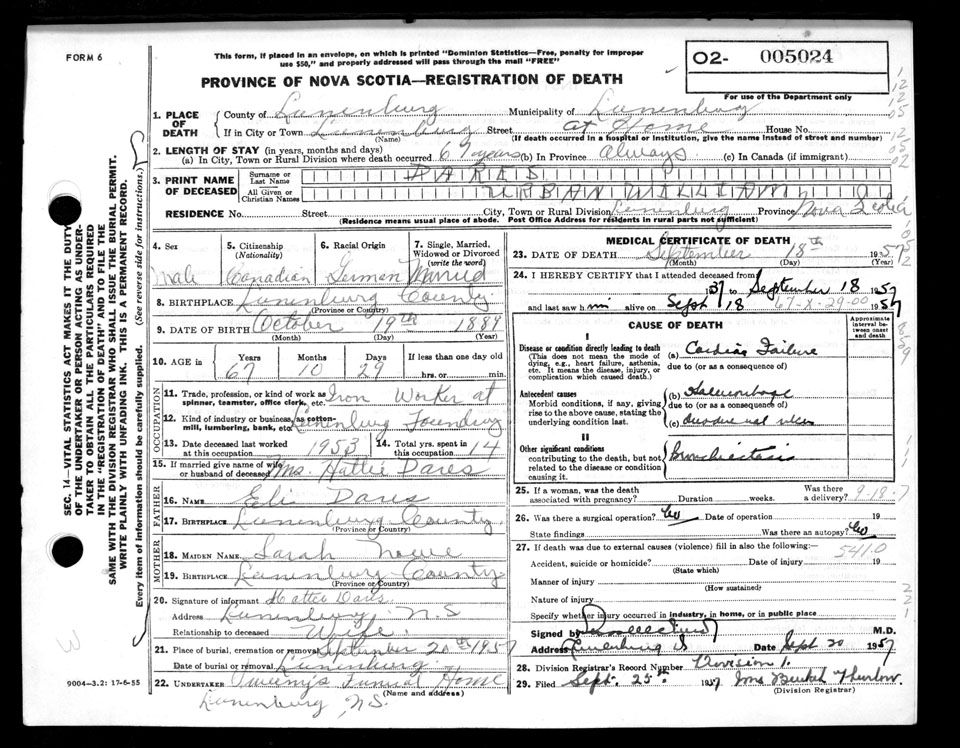 FORM 6
This form, if placed in an envelope, on which is printed "Dominion Statistics—Free, penalty for improper
use $50," and properly addressed will pass through the mail "FREE"
PROVINCE OF NOVA SCOTIA—REGISTRATION OF DEATH
02- 005024
For use of the Department only
1. PLACE OF DEATH
County of Lunenburg Municipality of Lunenburg
If in City or Town Lunenburg Street at Home House No.
(Name) (If death occurred in a hospital or institution, give the name instead of street and number)
2. LENGTH OF STAY (in years, months and days)
(a) In City, Town or Rural Division where death occurred 67 years (b) In Province always (c) In Canada (if immigrant)
3. PRINT NAME OF DECEASED
Surname or Last Name DARES
All Given or Christian Names URBAN WILLIAM
RESIDENCE No. Street City, Town or Rural Division Lunenburg Province Nova Scotia
(Residence means usual place of abode. Post Office Address for residents in rural parts not sufficient)
4. Sex Male
5. Citizenship (Nationality) Canadian
6. Racial Origin German
7. Single, Married, Widowed or Divorced (write the word) Married
8. BIRTHPLACE Lunenburg County
(Province or Country)
9. DATE OF BIRTH October 19th 1889
(Month) (Day) (Year)
10. AGE in Years Months Days If less than one day old
67 10 29 hrs. or min.
OCCUPATION
11. Trade, profession, or kind of work as spinner, teamster, office clerk, etc. Iron Worker at
12. Kind of industry or business, as cotton-mill, lumbering, bank, etc. Lunenburg Foundry
13. Date deceased last worked at this occupation 1953
14. Total yrs. spent in this occupation 14
15. If married give name of wife or husband of deceased Mrs. Hattie Dares
FATHER
16. NAME Eli Dares
17. BIRTHPLACE Lunenburg County
(Province or Country)
MOTHER
18. MAIDEN NAME Sarah Nowe
19. BIRTHPLACE Lunenburg County
(Province or Country)
20. Signature of informant Hattie Dares
Address Lunenburg N.S
Relationship to deceased Wife.
21. Place of burial, cremation or removal September 20th 1957
Date of burial or removal Lunenburg.
22. UNDERTAKER Funeral Home
(Name and address)
Lunenburg N.S.
9004-3.2: 17-6-55
MEDICAL CERTIFICATE OF DEATH
23. DATE OF DEATH September 18th 1957
(Month) (Day) (Year)
24. I HEREBY CERTIFY that I attended deceased from
1937 to September 18 1957
and last saw him alive on Sept 18 1957
67-X-29-00
CAUSE OF DEATH
Approximate interval between onset and death
I
Disease or condition directly leading to death
(This does not mean the mode of dying, e.g., heart failure, asthenia, etc. It means the disease, injury, or complication which caused death.)
(a) Cardiac Failure
due to (or as a consequence of)
Antecedent causes
Morbid conditions, if any, giving rise to the above cause, stating the underlying condition last.
(b) Haemorrhage
due to (or as a consequence of)
(c) duodenal ulcer
II
Other significant conditions
contributing to the death, but not related to the disease or condition causing it.
Bronchiectasis
25. If a woman, was the death associated with pregnancy? Duration weeks. Was there a delivery?
26. Was there a surgical operation? No Date of operation 19
State findings Was there an autopsy? No
27. If death was due to external causes (violence) fill in also the following: 541.0
Accident, suicide or homicide? Date of injury 19
(State which)
Manner of injury
(How sustained)
Nature of injury
Specify whether injury occurred in industry, in home, or in public place
Signed by M.D.
Address Lunenburg NS Date Sept 20 1957
28. Division Registrar's Record Number Division 1.
29. Filed Sept. 25th 1957 Mrs Thurlow
(Division Registrar)
SEC. 14—VITAL STATISTICS ACT MAKES IT THE DUTY
OF THE UNDERTAKER OR PERSON ACTING AS UNDER-
TAKER TO OBTAIN ALL THE PARTICULARS REQUIRED
IN THE "REGISTRATION OF DEATH" AND TO FILE THE
SAME WITH THE DIVISION REGISTRAR WHO SHALL ISSUE THE BURIAL PERMIT.
WRITE PLAINLY WITH UNFADING INK. THIS IS A PERMANENT RECORD.
Every item of information should be carefully supplied. (See reverse side for instructions.)